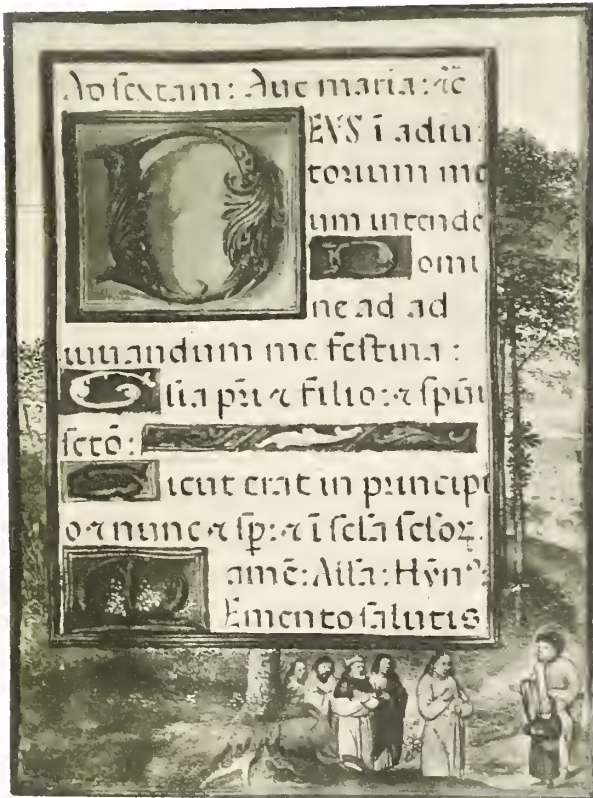 Ad sextam: Aue maria: ⁊c̄
DEVS ī adiu
toꝛium me
um intende
Domi
ne ad ad
iuuandum me festina:
Gl̄ia pr̄i ⁊ filio: ⁊ spūi
sctō:
Sicut erat in pꝛincipi
o ⁊ nunc ⁊ sp̄: ⁊ ī scl̄a scl̄oꝝ.
amē: All̄a: Hȳnꝰ:
Memento salutis